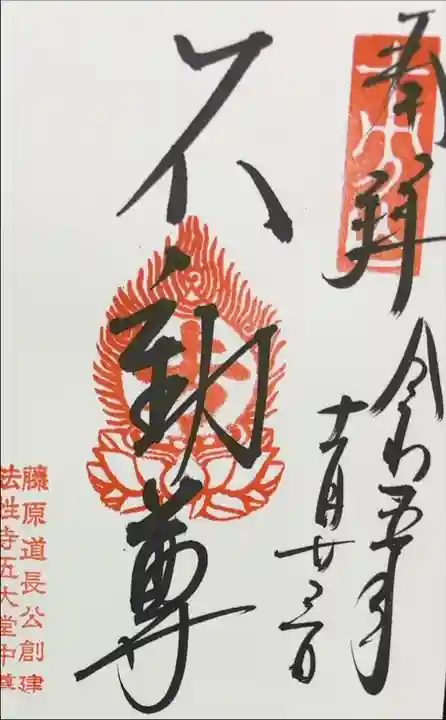 奉拝
令和五年
十一月廿三日
不動尊
藤原道長公創建
法性寺五大堂中尊